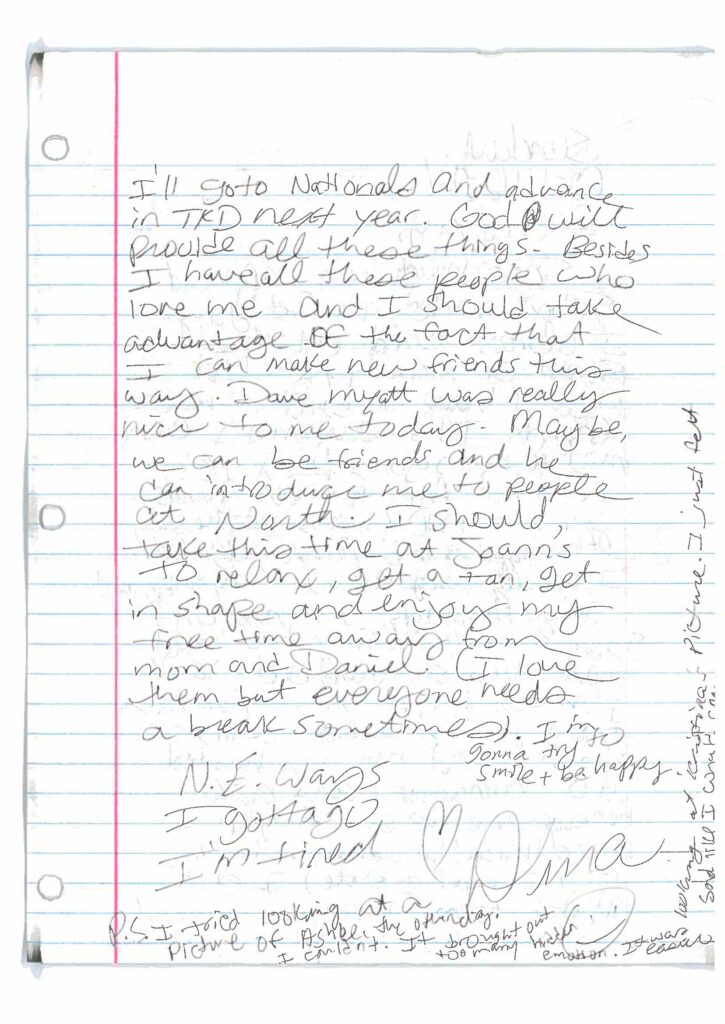 I'll go to Nationals and advance
in TKD next year. God will
provide all these things. Besides
I have all these people who
love me and I should take
advantage of the fact that
I can make new friends this
way. Dave myatt was really
nice to me today. Maybe,
we can be friends and he
can introduce me to people
at North. I should,
take this time at Joann's
to relax, get a tan, get
in shape and enjoy my
free time away from
mom and Daniel. (I love
them but everyone needs
a break sometimes). I'm
gonna try to
smile + be happy.
N.E. Ways
I gotta go,
I'm tired
P.S. I tried looking at a
picture of the other day.
I couldn't. It brought out
too many hidden
emotion. It was
easier
looking at picture. I just felt
sad like I